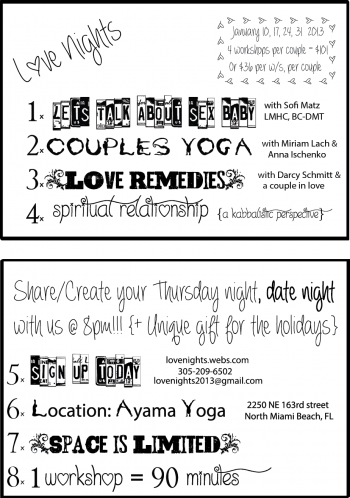 Love Nights
January 10, 17, 24, 31 2013
4 workshops per couple = $101
Or $36 per w/s, per couple
1x LETS TALK ABOUT SEX BABY with Sofi Matz
LMHC, BC-DMT
2x COUPLES YOGA with Miriam Lach &
Anna Ischenko
3x LOVE REMEDIES with Darcy Schmitt &
a couple in love
4x spiritual relationship {a kabbalistic perspective}
Share/Create your Thursday night, date night
with us @ 8pm!!! {+ Unique gift for the holidays}
5x SIGN UP TODAY
lovenights.webs.com
305-209-6502
lovenights2013@gmail.com
6x Location: Ayama Yoga 2250 NE 163rd street
North Miami Beach, FL
7x SPACE IS LIMITED
8x 1 workshop = 90 minutes